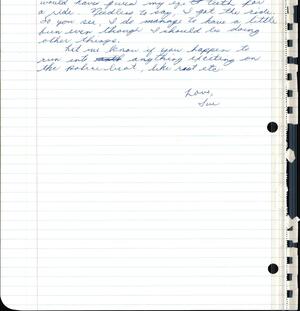 would have given my eye teeth for
a ride. Needless to say, I got the ride.
So you see, I do manage to have a little
fun even though I should be doing
other things.
Let me know if you happen to
run into anything exciting on
the police beat, like riot etc.
Love,
Sue